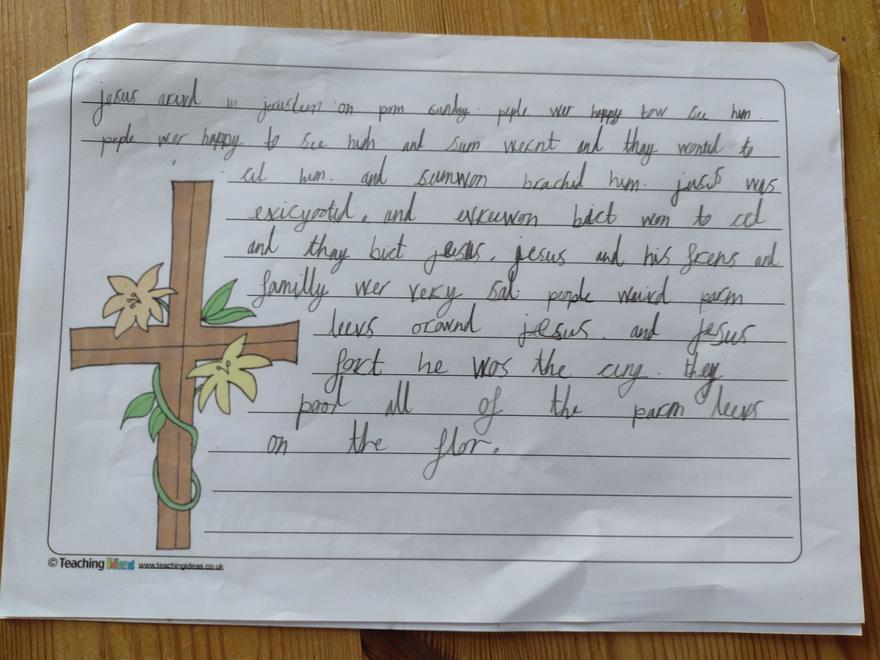 jesus arivd in jerusleum on parm sunday. peple wer happy tow see him.
peple wer happy to see hiuh and sum wernt and thay wontid to
cil him. and sumwon brachid him. jusis was
exicyootid. and evreuwon bict won to cil
and thay bict jesus. jesus and his frens and
familly wer very sad. people waivd parm
leevs orawnd jesus. and jesus
fort he wos the cing. they
pood all of the parm leevs
on the flor.
© Teaching Ideas www.teachingideas.co.uk